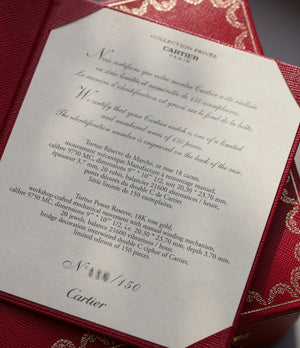 COLLECTION PRIVÉE
CARTIER
PARIS
Nous certifions que votre montre Cartier a été réalisée
en série limitée et numérotée de 150 exemplaires.
Le numéro d'identification est gravé sur le fond de la boîte.
We certify that your Cartier watch is one of a limited
and numbered series of 150 pieces.
The identification number is engraved on the back of the case.
Tortue Réserve de Marche, or rose 18 carats,
mouvement mécanique Manufacture à remontage manuel,
calibre 9750 MC, dimensions 9''' × 10''' 1/2, soit 20,30 × 23,70 mm,
épaisseur 3,7 mm, 20 rubis, balancier 21600 alternances / heure,
ponts décorés du double C de Cartier.
Série limitée de 150 exemplaires.
Tortue Power Reserve, 18K rose gold,
workshop-crafted mechanical movement with manual winding mechanism,
calibre 9750 MC, dimensions 9''' × 10''' 1/2, i.e. 20,30 × 23,70 mm, depth 3.70 mm,
20 jewels, balance 21600 vibrations / hour,
bridge decoration intertwined double C cipher of Cartier,
limited edition of 150 pieces.
N° /150
Cartier